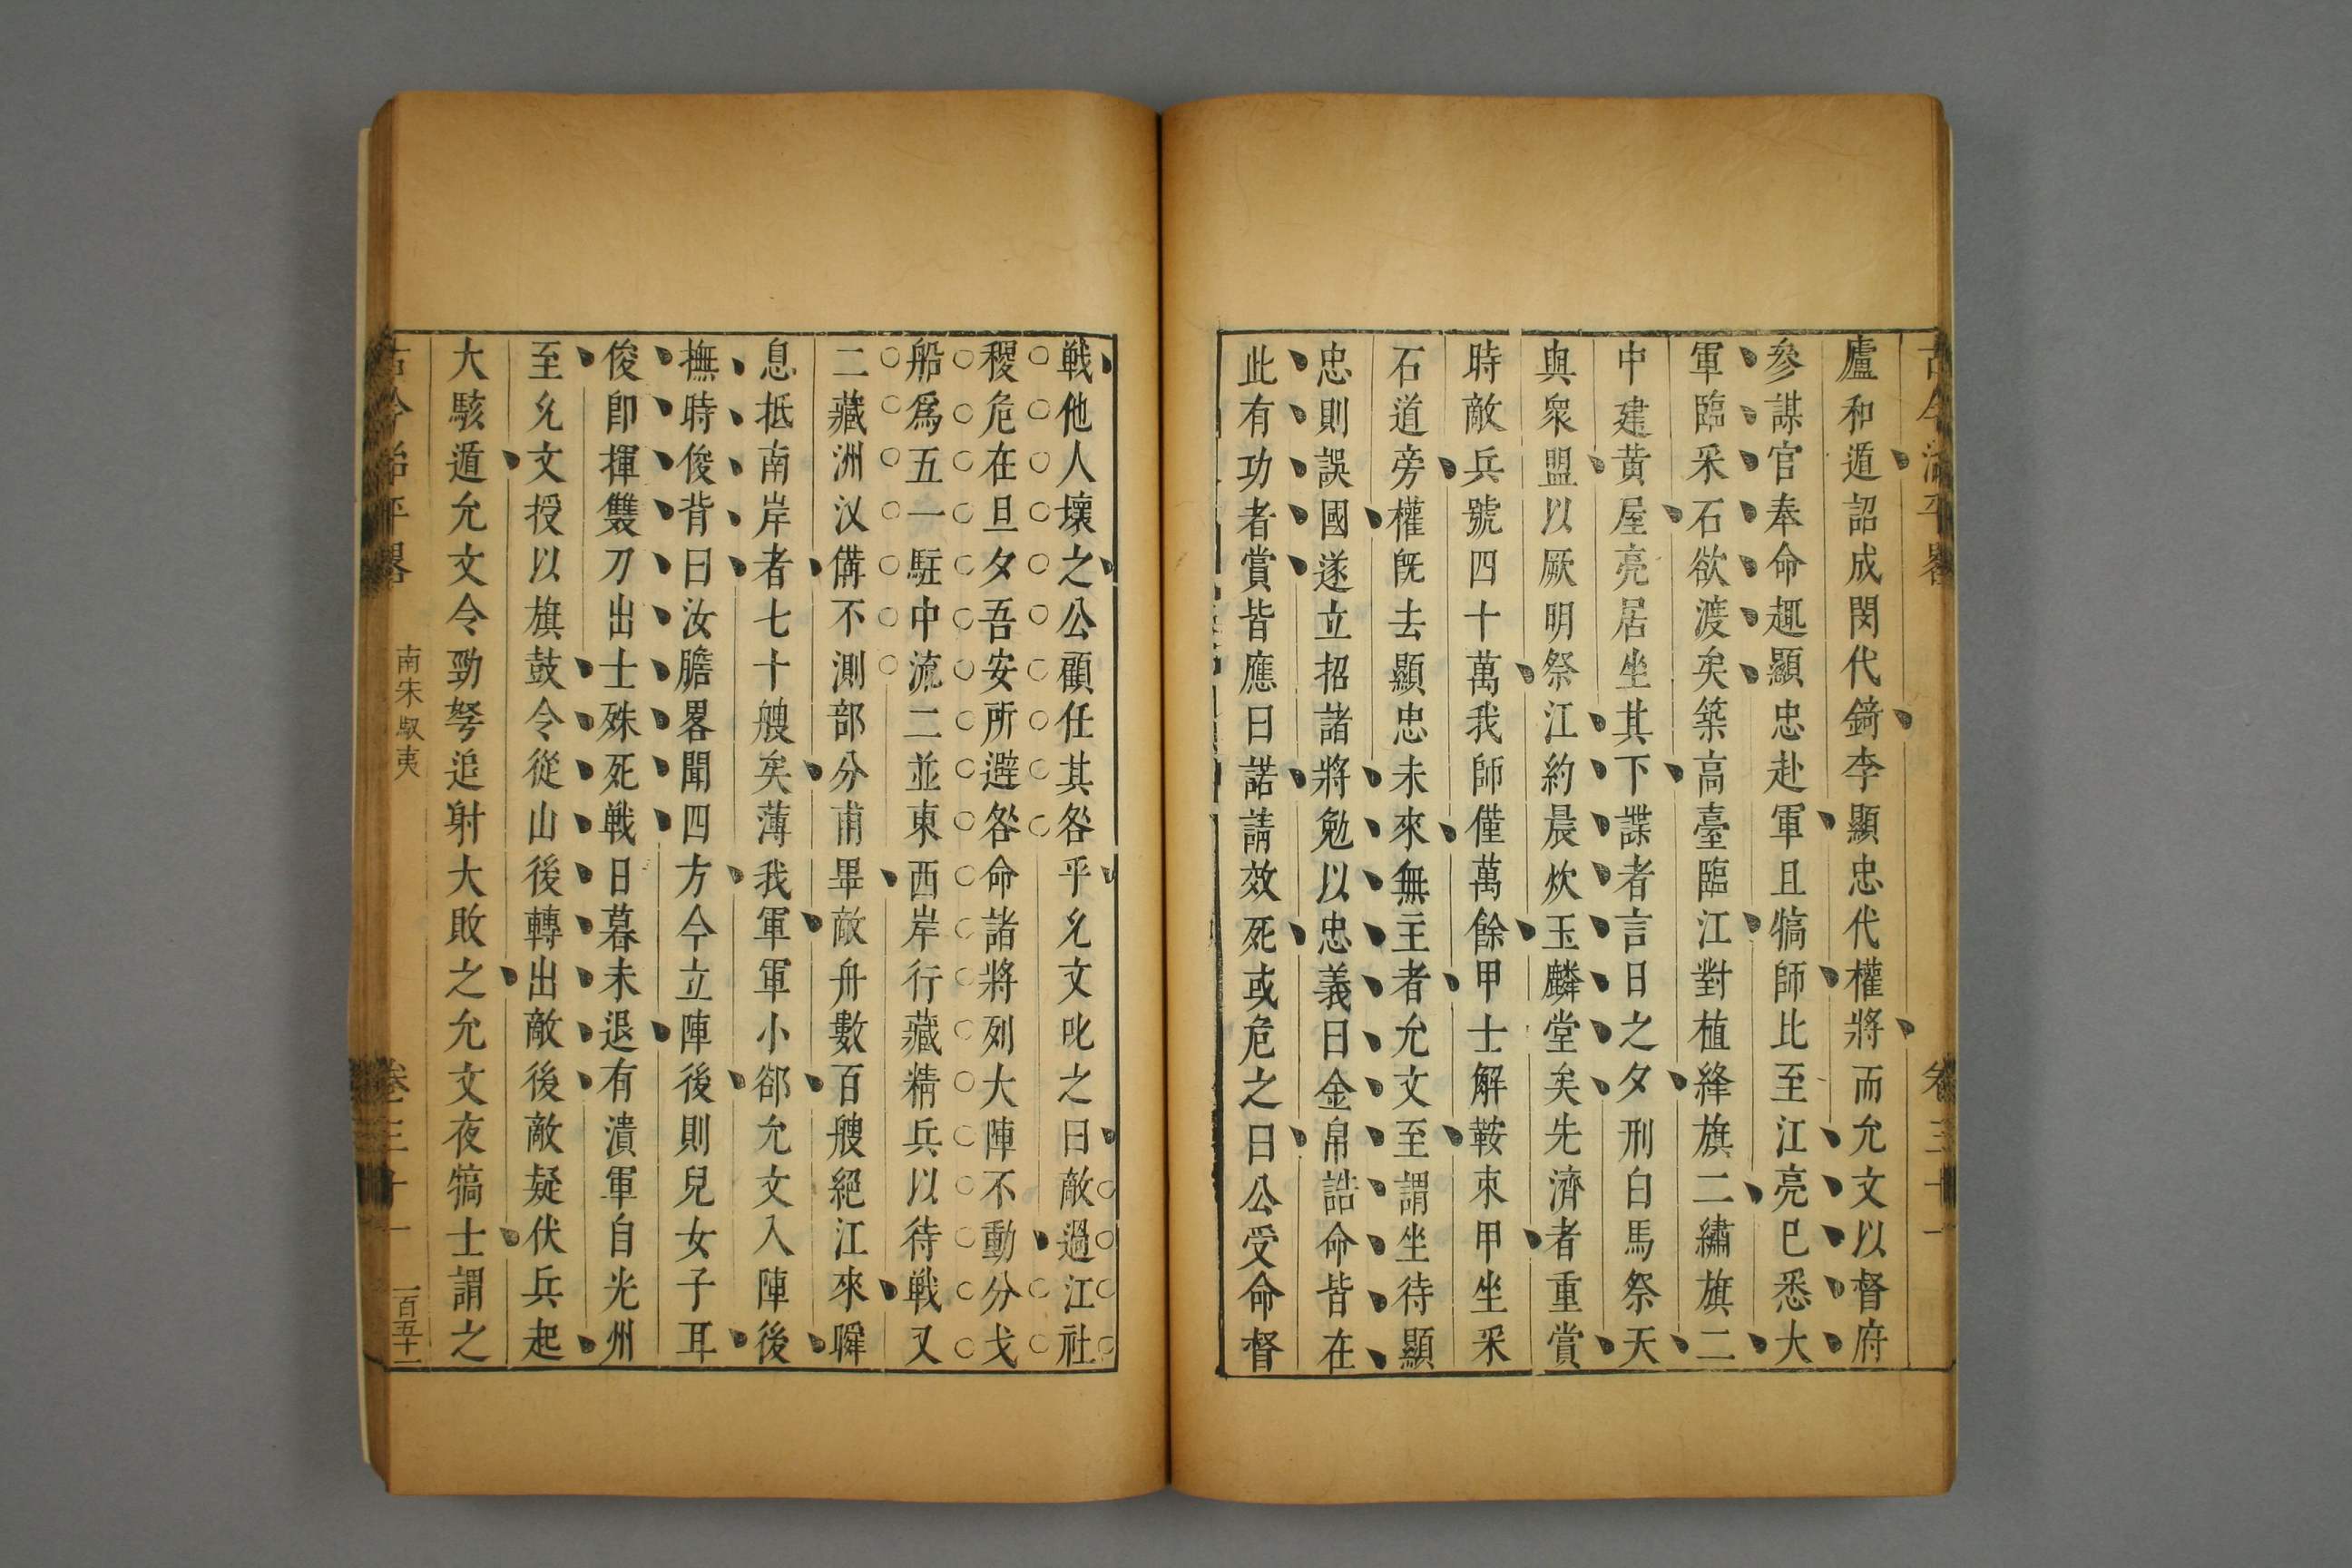 古今治平畧 卷三十一
廬和遁詔成閔代錡李顯忠代權將而允文以督府
參謀官奉命趣顯忠赴軍且犒師比至江亮巳悉大
軍臨采石欲渡矣築高臺臨江對植絳旗二繡旗二
中建黄屋亮居坐其下諜者言日之夕刑白馬祭天
與衆盟以厥明祭江約晨炊玉麟堂矣先濟者重賞
時敵兵號四十萬我師僅萬餘甲士解鞍束甲坐采
石道旁權既去顯忠未來無主者允文至謂坐待顯
忠則誤國遂立招諸將勉以忠義曰金帛誥命皆在
此有功者賞皆應曰諾請效死或危之曰公受命督
戰他人壞之公顧任其咎乎允文叱之曰敵過江社
稷危在旦夕吾安所避咎命諸將列大陣不動分戈
船爲五一駐中流二並東西岸行藏精兵以待戰又
二藏洲汊備不測部分甫畢敵舟數百艘絕江來瞬
息抵南岸者七十艘矣薄我軍軍小郤允文入陣後
撫時俊背曰汝膽畧聞四方今立陣後則兒女子耳
俊卽揮雙刀出士殊死戰日暮未退有潰軍自光州
至允文授以旗鼓令從山後轉出敵後敵疑伏兵起
大駭遁允文令勁弩追射大敗之允文夜犒士謂之
古今治平畧 南宋馭夷 卷三十一 一百五十一